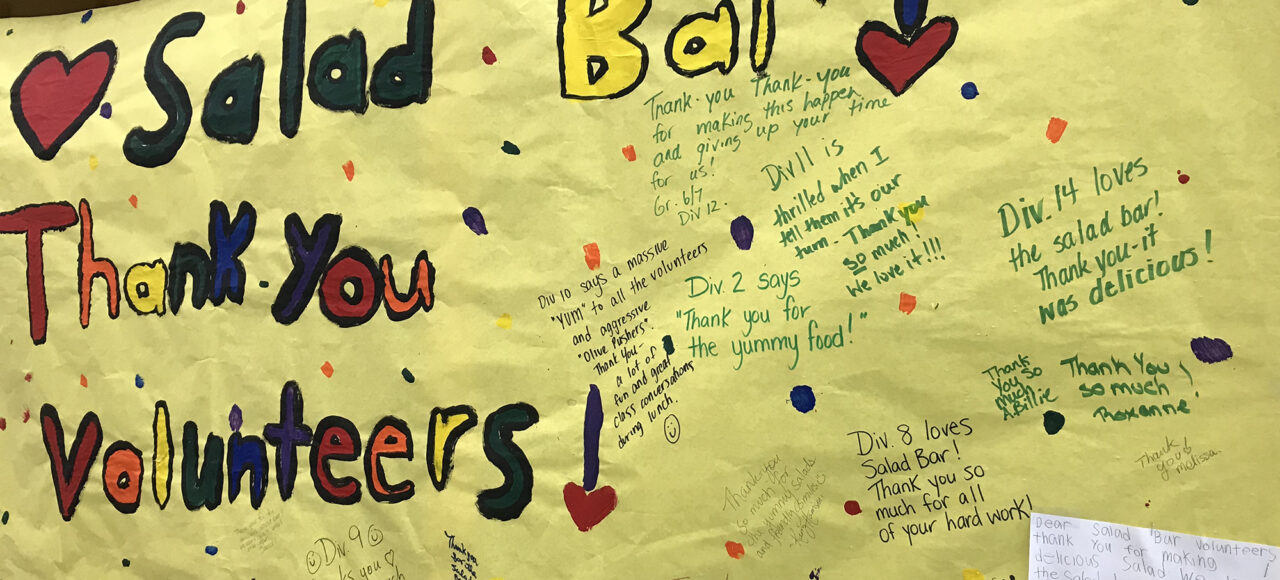 Salad Bar
Thank-You
Volunteers!
Thank-you Thank-you
for making this happen
and giving up your time
for us!
Gr. 6/7
Div 12.
Div 11 is
thrilled when I
tell them it's our
turn - Thank you
so much!
We love it!!!
Div. 14 loves
the salad bar!
Thank you-it
was delicious!
Div 10 says a massive
"YUM" to all the volunteers
and aggressive
"Olive Pushers".
Thank You -
a lot of
fun and great
class conversations
during lunch.
Div. 2 says
"Thank you for
the yummy food!"
Thank
you so
much
A. Billie
Thank You
so much
Roxanne!
Div. 8 loves
Salad Bar!
Thank you so
much for all
of your hard work!
Thank
you!
Melissa.
Thank you
so much for
the yummy salads
and
Div. 9
Thank
you
for the
Salad
Dear Salad Bar Volunteers
thank You for making
delicious Salad
the Salad